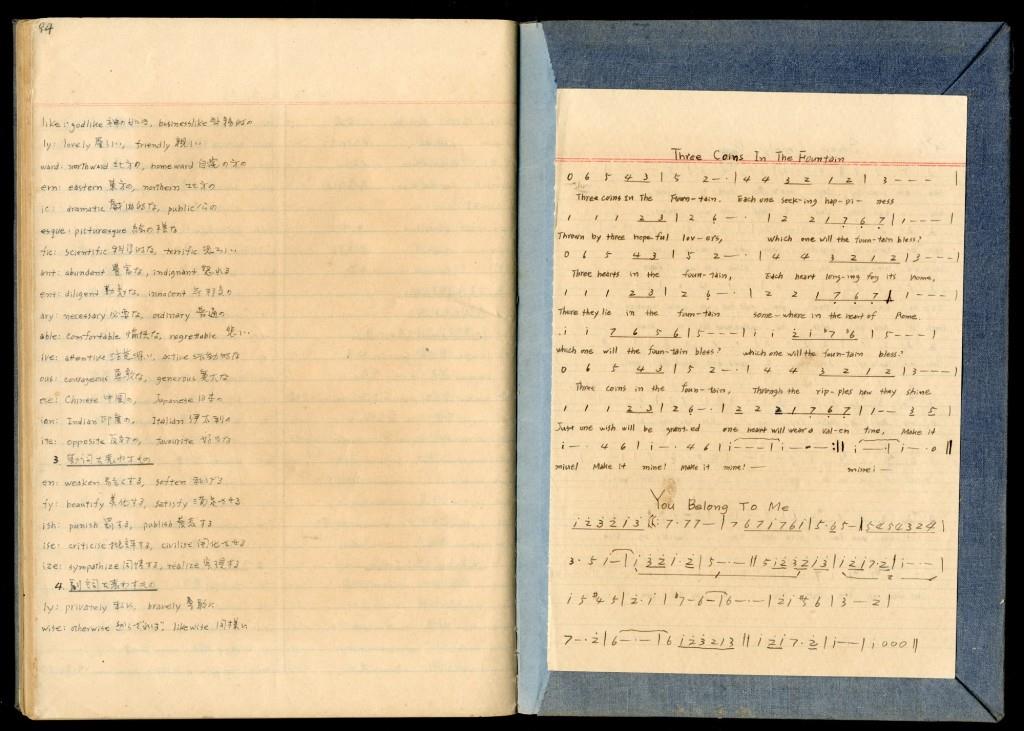 94
like: godlike 神の如き, businesslike 事務的の
ly: lovely 美しい, friendly 親しい
ward: northward 北方の, homeward 自宅の方の
ern: eastern 東方の, northern 北方の
ic: dramatic 劇的な, public 公の
esque: picturesque 絵の様な
fic: scientific 科学的な, terrific 恐ろしい
ant: abundant 豊富な, indignant 怒れる
ent: diligent 勤勉な, innocent
ary: necessary 必要な, ordinary 普通の
able: comfortable 愉快な, regrettable
ive: attentive 注意深い, active 活動的な
ous: courageous 勇敢な, generous 寛大な
ese: Chinese 中国の, Japanese 日本の
ian: Indian 印度の, Italian 伊太利の
ite: opposite 反対の, favourite 好きな
3. 動詞を表わすもの
en: weaken 弱くする, soften
fy: beautify 美化する, satisfy 満足させる
ish: punish 罰する, publish 発表する
ise: criticise 批評する, civilise 開化させる
ize: sympathize 同情する, realize 実現する
4. 副詞を表わすもの
ly: privately 私に, bravely 勇敢に
wise: otherwise, likewise 同様に
Three Coins In The Fountain
0 6 5 4 3 | 5 2 - · | 4 4 3 2 1 2 | 3 - - - |
Three coins In The Foun-tain. Each one seek-ing hap-pi-ness
1 1 1 2 3 | 2 6 - · | 2 2 1 7 6 7 | 1 - - - |
Thrown by three hope-ful lov-ers, which one will the foun-tain bless?
0 6 5 4 3 | 5 2 - · | 4 4 3 2 1 2 | 3 - - - |
Three hearts in the foun-tain, Each heart long-ing for its home,
1 1 1 2 3 | 2 6 - · | 2 2 1 7 6 7 | 1 - - - |
There they lie in the foun-tain some-where in the heart of Rome.
i i 7 6 5 6 | 5 - - - | i i 2 i b7 b6 | 5 - - - |
which one will the foun-tain bless? which one will the foun-tain bless?
0 6 5 4 3 | 5 2 - · | 4 4 3 2 1 2 | 3 - - - |
Three coins in the foun-tain, Through the rip-ples how they shine
1 1 1 2 3 | 2 6 - · | 2 2 2 1 7 6 7 | 1 - - 3 5 |
Just one wish will be grant-ed one heart will wear a val-en tine, Make it
i - · 4 6 | i - · 4 6 | i - - - | i - - · :|| i - - - | i - · 0 ||
mine! Make it mine! Make it mine! — mine! —
You Belong To Me
i 2 3 2 i 3 ||: 7 · 7 7 - | 7 6 7 i 7 6 i | 5 · 6 5 - | 5 4 5 4 3 2 4 |
3 · 5 i - | i 3 2 i · 2 | 5 - - · || 5 i 2 3 2 i 3 | i 2 i 7 · 2 | i - - · |
i 5 #4 5 | 2 · i | #7 - 6 - | 6 - - · | 2 i #5 6 | 3 - 2 |
7 - · 2 | 6 - - - | 6 i 2 3 2 i 3 || i 2 i 7 · 2 | i - - | i 0 0 0 ||